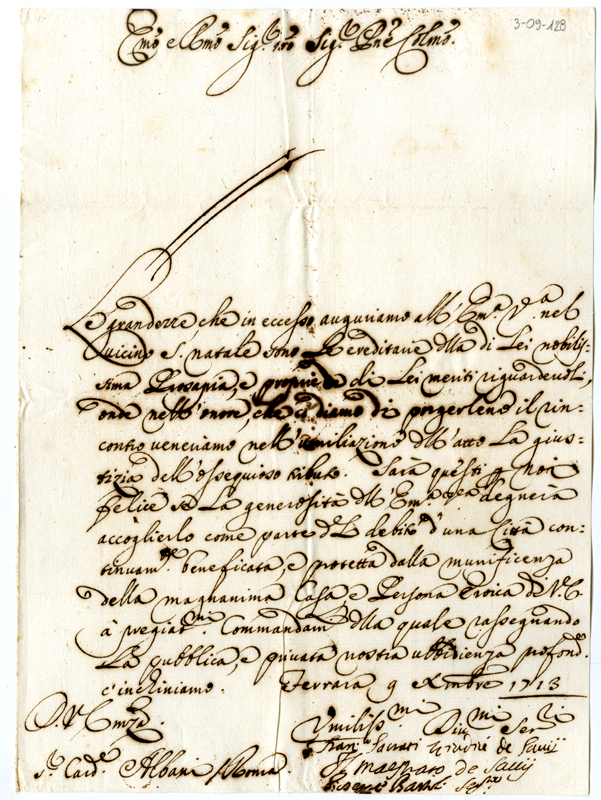 3-09-128
Emo e Rmo Sig.r nro Sig.r Pne Colmo.
Le grandezze che in eccesso auguriamo all'Em.a V.a nel
vicino S. natale sono Le ereditarie dlla di Lei nobilis=
sima Prosapia, e proprie de di Lei meriti riguardevoli,
onde nell'onore, che ci diamo di porgerlene il rin=
contro veneriamo nell'umiliazione dll'atto La gius=
tizia dell'ossequioso tributo. Sarà questi p noi
felice se La generosità dll'Em.a V.ra degnerà
accoglierlo come parte del debito d'una Città con=
tinuam.te beneficata, e protetta dalla munificenza
della magnanima Casa e Persona Eroica di V. E.
à pregiat.mi Commandam dlla quale rassegnando
La pubblica, e privata nostra ubbidienza profond.e
c'inchiniamo. Ferrara 9 Xmbre 1713
D. V. Em.za
Umiliss.mi Div.mi Ser.ri
S.r Card.e Albani / Roma.
Il Maestrato de Savij
Seg.rio